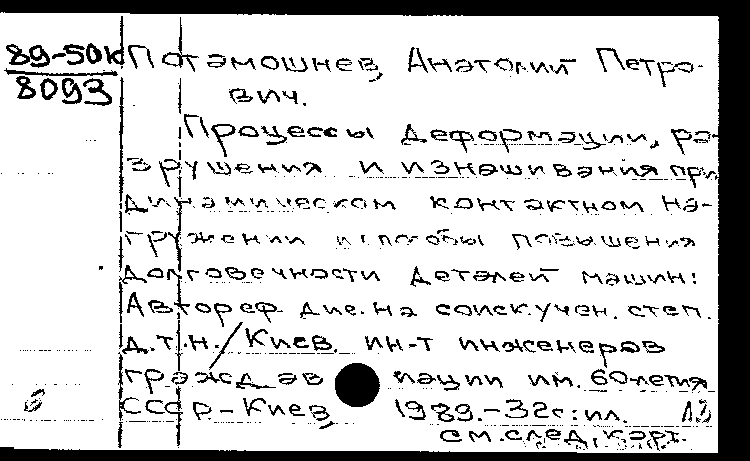 89-50к
8093
Потамошнев, Анатолий Петро-
вич.
Процессы деформации, ра-
зрушения и изнашивания при
динамическом контактном на-
гружении и способы повышения
долговечности деталей машин:
Автореф. дис. на соиск. учен. степ.
д.т.н./Киев. ин-т инженеров
гражд. ав иации им. 60-летия
СССР - Киев, 1989.-32с: ил.
см. след. карт.